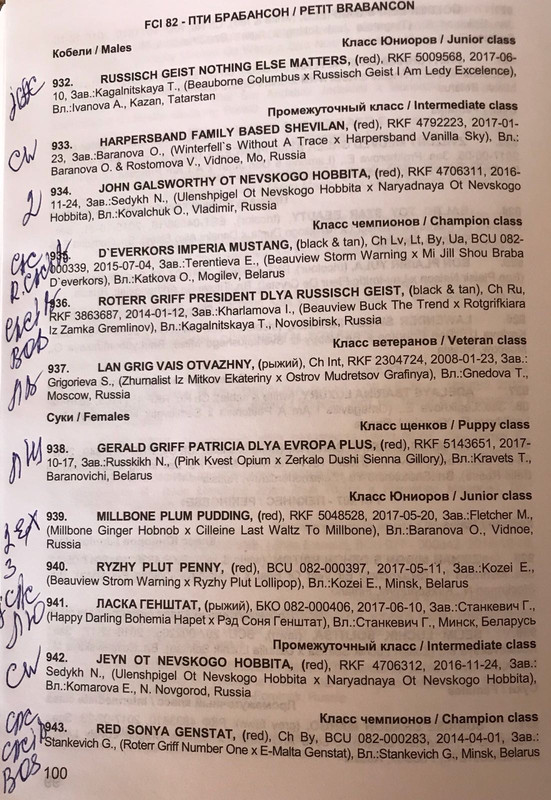 FCI 82 - ПТИ БРАБАНСОН / PETIT BRABANCON
Кобели / Males
Класс Юниоров / Junior class
JCAC
932. RUSSISCH GEIST NOTHING ELSE MATTERS, (red), RKF 5009568, 2017-06-
10, Зав.:Kagalnitskaya T., (Beauborne Columbus x Russisch Geist I Am Ledy Excelence),
Вл.:Ivanova A., Kazan, Tatarstan
Промежуточный класс / Intermediate class
CW
933. HARPERSBAND FAMILY BASED SHEVILAN, (red), RKF 4792223, 2017-01-
23, Зав.:Baranova O., (Winterfell`s Without A Trace x Harpersband Vanilla Sky), Вл.:
Baranova O. & Rostomova V., Vidnoe, Mo, Russia
2
934. JOHN GALSWORTHY OT NEVSKOGO HOBBITA, (red), RKF 4706311, 2016-
11-24, Зав.:Sedykh N., (Ulenshpigel Ot Nevskogo Hobbita x Naryadnaya Ot Nevskogo
Hobbita), Вл.:Kovalchuk O., Vladimir, Russia
Класс чемпионов / Champion class
CAC
R.CACIB
935. D`EVERKORS IMPERIA MUSTANG, (black & tan), Ch Lv, Lt, By, Ua, BCU 082-
000339, 2015-07-04, Зав.:Terentieva E., (Beauview Storm Warning x Mi Jill Shou Braba
D`everkors), Вл.:Katkova O., Mogilev, Belarus
CACIB
BOB
936. ROTERR GRIFF PRESIDENT DLYA RUSSISCH GEIST, (black & tan), Ch Ru,
RKF 3863687, 2014-01-12, Зав.:Kharlamova I., (Beauview Buck The Trend x Rotgrifkiara
Iz Zamka Gremlinov), Вл.:Kagalnitskaya T., Novosibirsk, Russia
Класс ветеранов / Veteran class
ЛВ
937. LAN GRIG VAIS OTVAZHNY, (рыжий), Ch Int, RKF 2304724, 2008-01-23, Зав.:
Grigorieva S., (Zhurnalist Iz Mitkov Ekateriny x Ostrov Mudretsov Grafinya), Вл.:Gnedova T.,
Moscow, Russia
Суки / Females
Класс щенков / Puppy class
ЛЩ
938. GERALD GRIFF PATRICIA DLYA EVROPA PLUS, (red), RKF 5143651, 2017-
10-17, Зав.:Russkikh N., (Pink Kvest Opium x Zerkalo Dushi Sienna Gillory), Вл.:Kravets T.,
Baranovichi, Belarus
Класс Юниоров / Junior class
939. MILLBONE PLUM PUDDING, (red), RKF 5048528, 2017-05-20, Зав.:Fletcher M.,
(Millbone Ginger Hobnob x Cilleine Last Waltz To Millbone), Вл.:Baranova O., Vidnoe,
Russia
3
940. RYZHY PLUT PENNY, (red), BCU 082-000397, 2017-05-11, Зав.:Kozei E.,
(Beauview Strom Warning x Ryzhy Plut Lollipop), Вл.:Kozei E., Minsk, Belarus
JCAC
ЛЮ
941. ЛАСКА ГЕНШТАТ, (рыжий), БКО 082-000406, 2017-06-10, Зав.:Станкевич Г.,
(Happy Darling Bohemia Hapet x Рэд Соня Генштат), Вл.:Станкевич Г., Минск, Беларусь
Промежуточный класс / Intermediate class
CW
942. JEYN OT NEVSKOGO HOBBITA, (red), RKF 4706312, 2016-11-24, Зав.:
Sedykh N., (Ulenshpigel Ot Nevskogo Hobbita x Naryadnaya Ot Nevskogo Hobbita),
Вл.:Komarova E., N. Novgorod, Russia
Класс чемпионов / Champion class
CAC
CACIB
BOS
943. RED SONYA GENSTAT, (red), Ch By, BCU 082-000283, 2014-04-01, Зав.:
Stankevich G., (Roterr Griff Number One x E-Malta Genstat), Вл.:Stankevich G., Minsk, Belarus
100